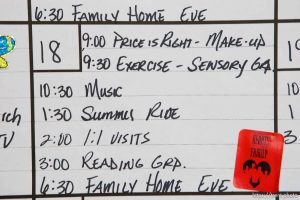 6:30 Family Home Eve
18
9:00 Price is Right - Make-up
9:30 Exercise - Sensory Grp.
10:30 Music
1:30 Summer Ride
2:00 1:1 Visits
3:00 Reading Grp.
6:30 Family Home Eve
19
FAMILY
ch
TV
10
1
2
3